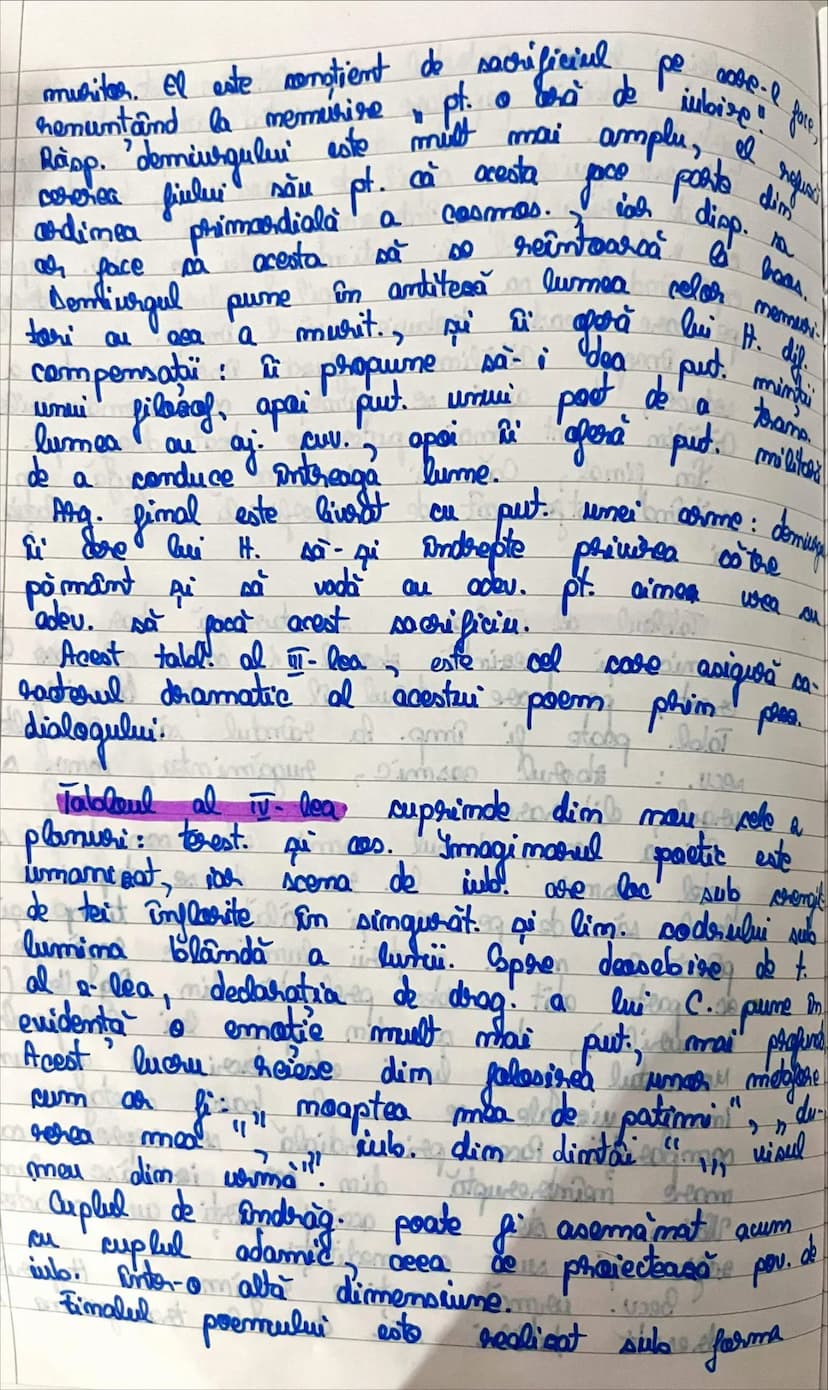 muritor. El este conștient de sacrificiul pe care-l face,
renunțând la nemurire „pt. o oră de iubire".
Răsp. demiurgului este mult mai amplu, el refuză
cererea fiului său pt. că acesta face parte din
ordinea primordială a cosmos., iar disp. sa
ar face ca acesta să se reîntoarcă la haos.
Demiurgul pune în antiteză lumea celor nemuri-
tori cu cea a murit., și îi oferă lui H. dif.
compensații: îi propune să-i dea put. minții
unui filosof, apoi put. unui poet de a
lumea cu aj. cuv., apoi îi oferă put. militară
de a conduce întreaga lume.
Arg. final este livrat cu put. unei arme: demiurgu
îi cere lui H. să-și îndrepte privirea către
pământ și să vadă cu adev. pt. cinea vrea cu
adev. să facă acest sacrificiu.
Acest tabl. al III-lea, este cel care asigură ca-
racterul dramatic al acestui poem prin prez.
dialogului.
Tabloul al IV-lea cuprinde din nou cele 2
planuri: terest. și cos. Imaginarul poetic este
umanizat, iar scena de iub. are loc sub crengile
de tei înflorite în singurăt. și lin. codrului sub
lumina blândă a lunii. Spre deosebire de t.
al 2-lea, declarația de drag. a lui C. pune în
evidență o emoție mult mai put., mai profund
Acest lucru reiese din folosirea unor metafore
cum ar fi: „noaptea mea de patimi", „du-
rerea mea", „iub. din dintâi", „visul
meu din urmă".
Cuplul de îndrăg. poate fi asemănat acum
cu cuplul adamic, ceea ce proiectează pov. de
iub. într-o altă dimensiune.
Finalul poemului este realizat sub forma